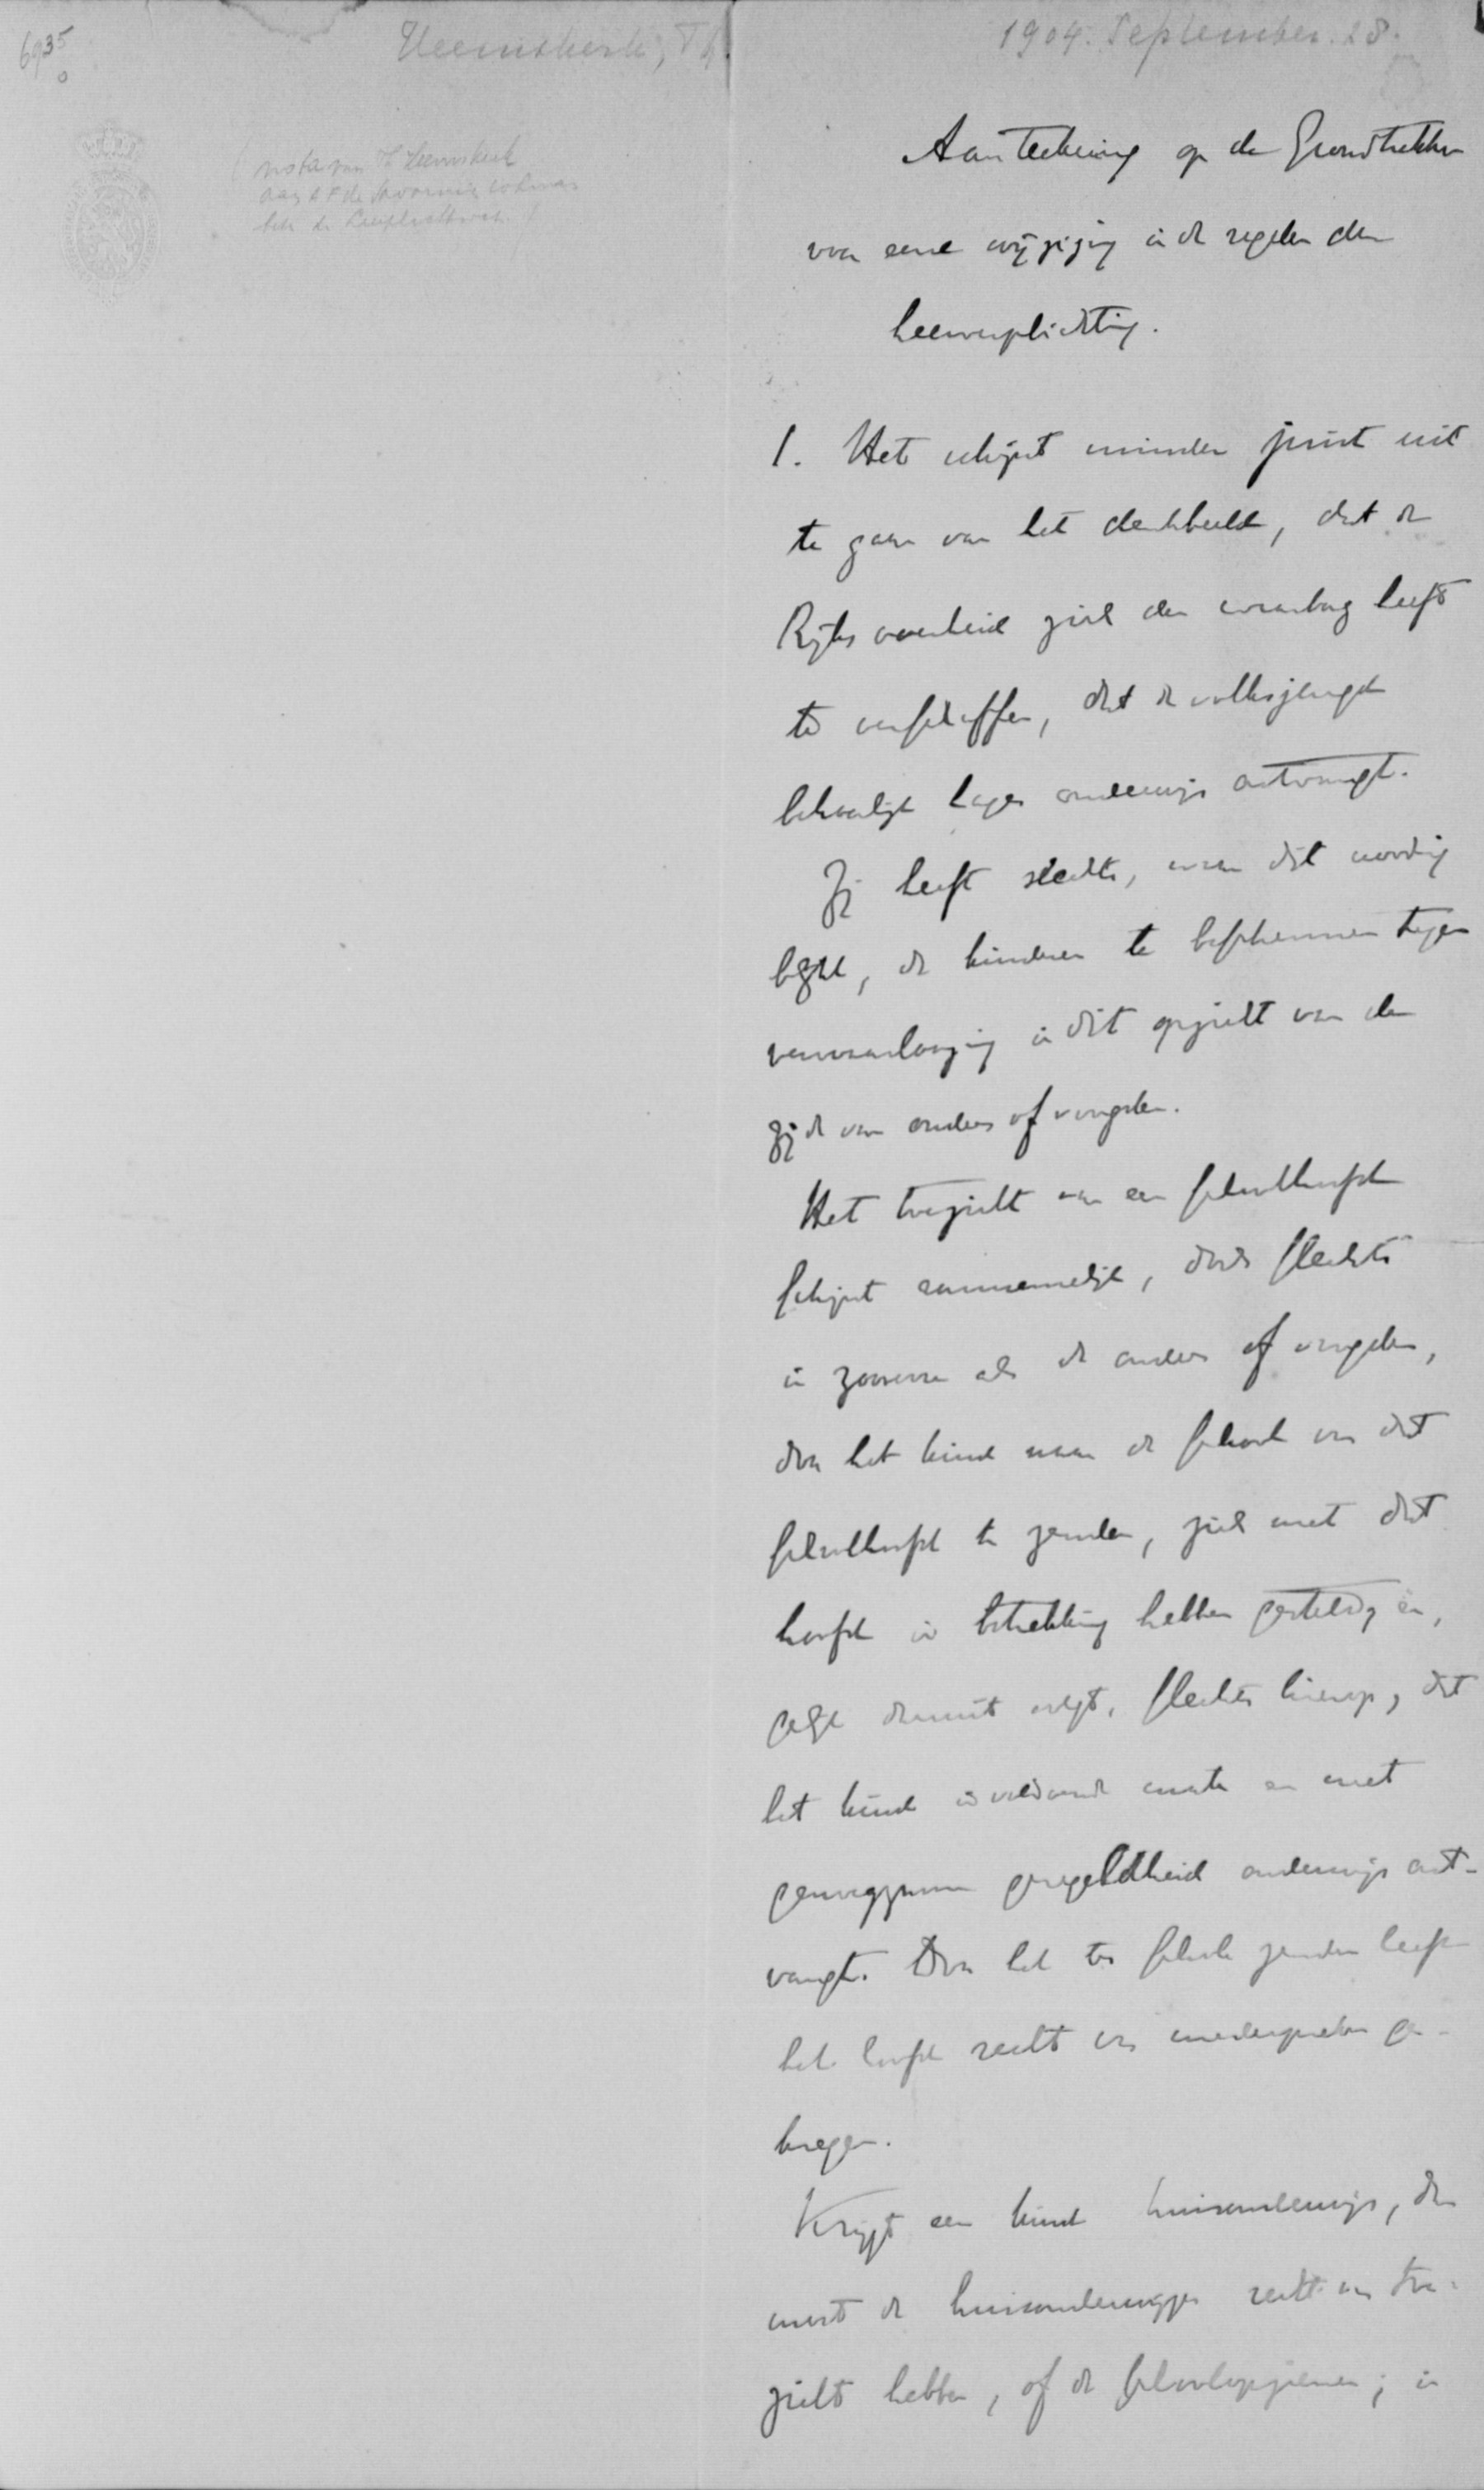 6935
0
Heemskerk, Th.
1904. September. 28.
nota van Th Heemskerk
aan A F de Savornin Lohman
betr. de Leerplichtwet.
Aanteekening op de Grondtrekken
voor eene wijziging in de regelen der
leerverplichting.
1. Het schijnt minder juist uit
te gaan van het denkbeeld, dat de
Rijks overheid zich den waarborg heeft
te verschaffen, dat de volksjeugd
behoorlijk lager onderwijs ontvangt.
Zij heeft slechts, waar dit noodig
blijkt, de kinderen te beschermen tegen
verwaarloozing in dit opzicht van de
zijde van ouders of voogden.
Het toezicht van een schoolhoofd
schijnt aannemelijk, doch slechts
in zooverre als de ouders of voogden,
door het kind naar de school van dat
schoolhoofd te zenden, zich met dat
hoofd in betrekking hebben gesteld, en,
gelijk daaruit volgt, slechts hierop, dat
het kind in voldoende mate en met
genoegzame geregeldheid onderwijs ont-
vangt. Door het ter school zenden heeft
het hoofd recht van medespreken ge-
kregen.
Krijgt een kind huisonderwijs, dan
moet de huisonderwijzer recht van toe-
zicht hebben, of de schoolopziener; in